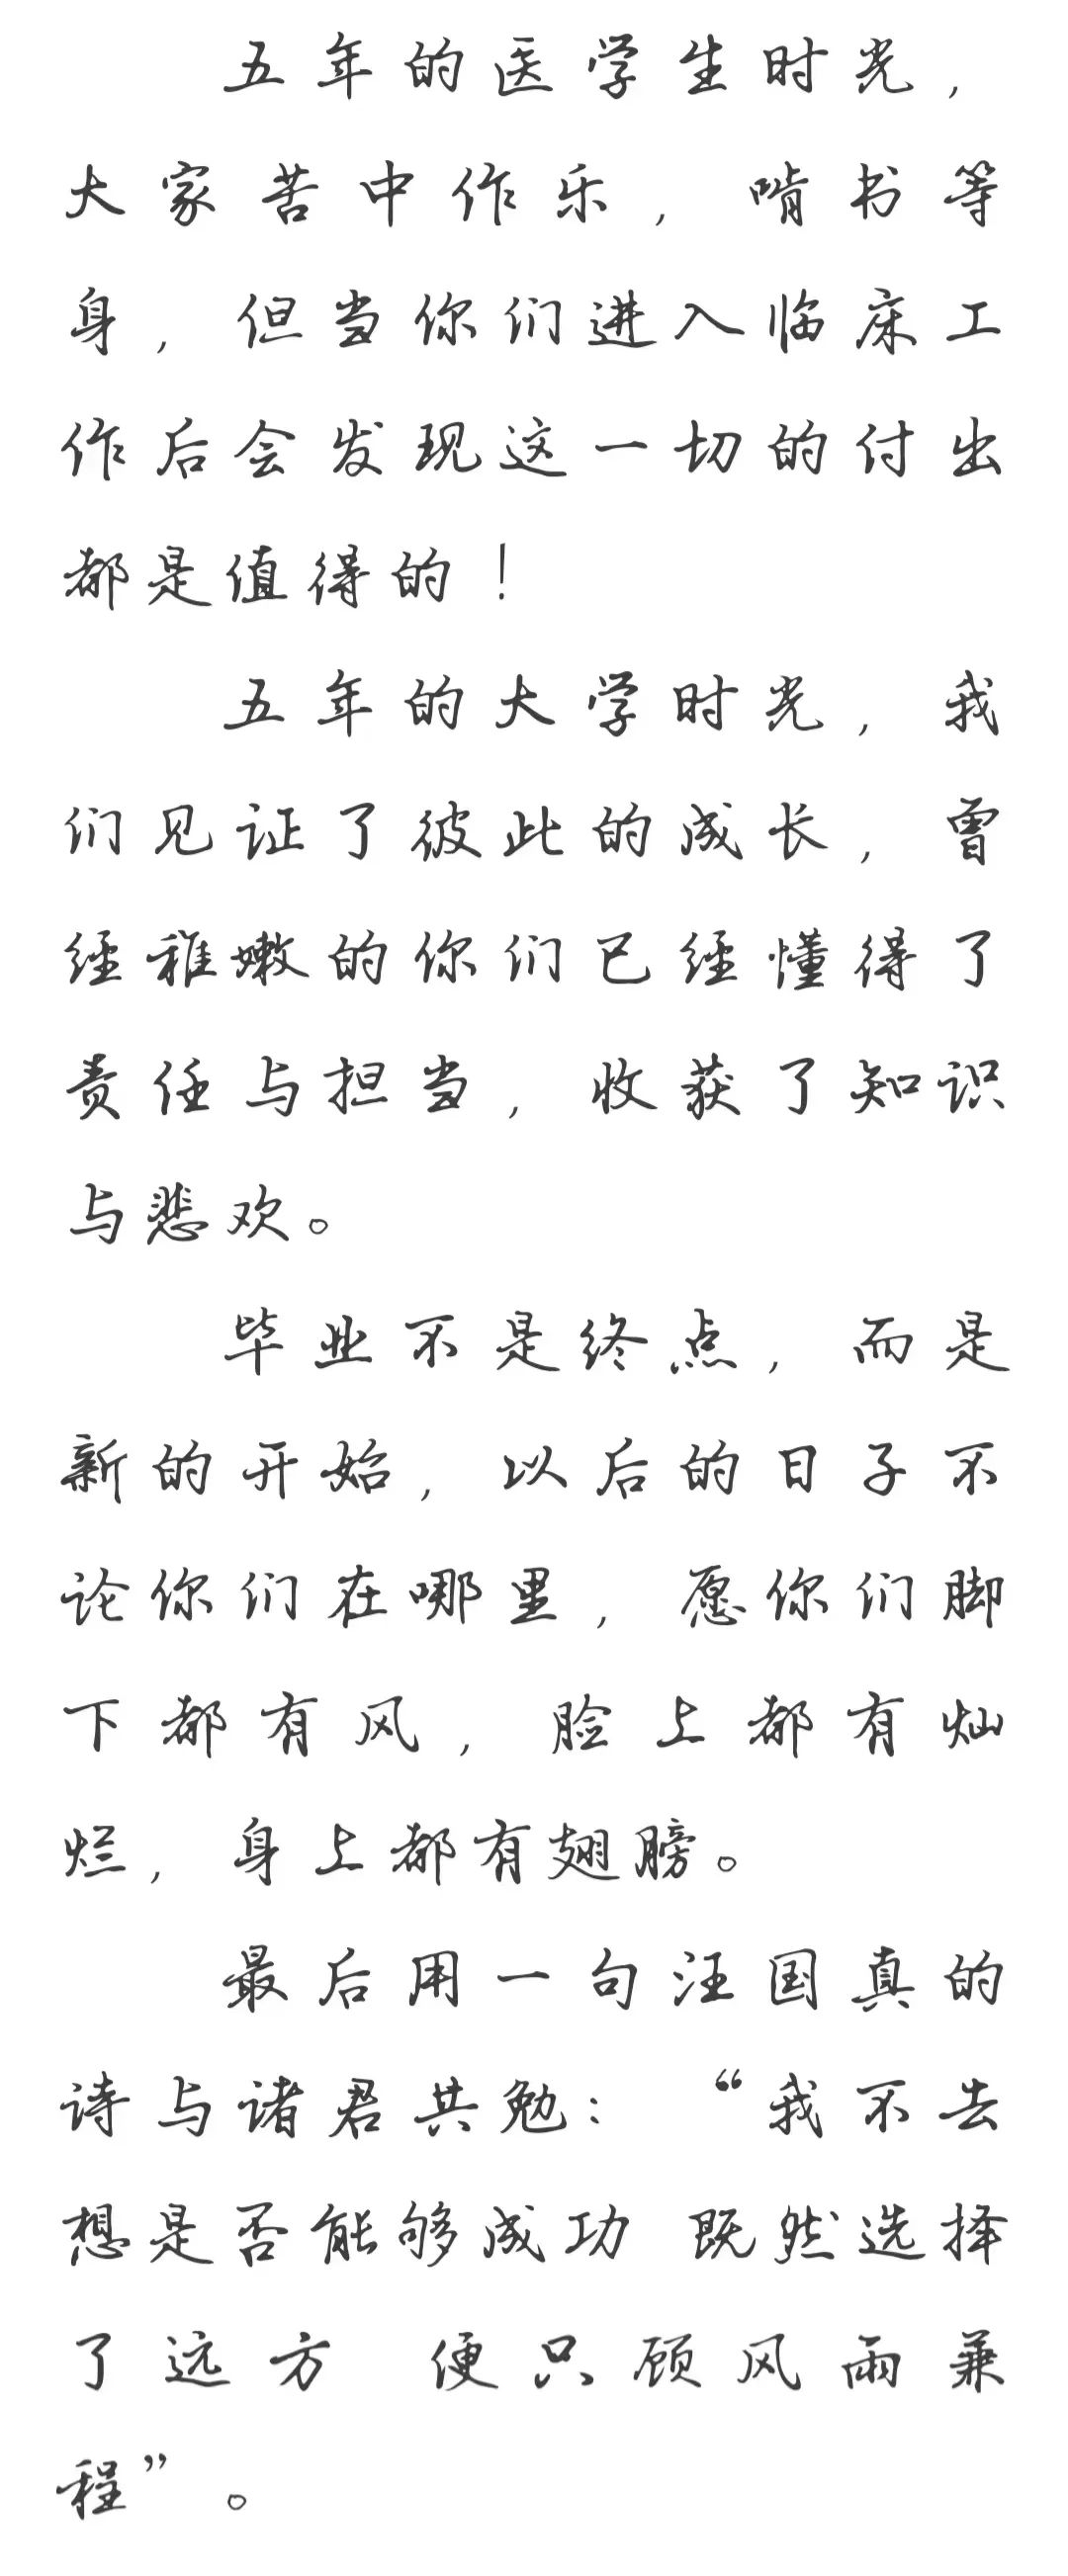 五年的医学生时光，
大家苦中作乐，啃书等
身，但当你们进入临床工
作后会发现这一切的付出
都是值得的！
五年的大学时光，我
们见证了彼此的成长，曾
经稚嫩的你们已经懂得了
责任与担当，收获了知识
与悲欢。
毕业不是终点，而是
新的开始，以后的日子不
论你们在哪里，愿你们脚
下都有风，脸上都有灿
烂，身上都有翅膀。
最后用一句汪国真的
诗与诸君共勉：“我不去
想是否能够成功 既然选择
了远方 便只顾风雨兼
程”。